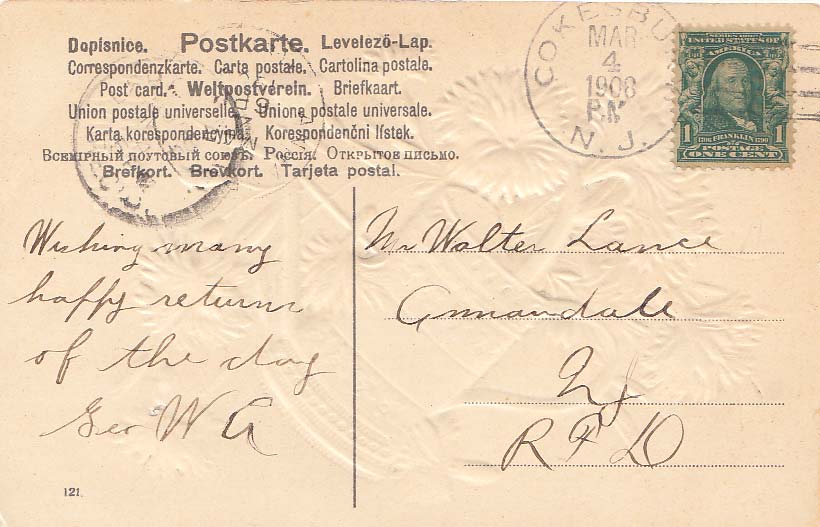 Dopisnice. Postkarte. Levelező-Lap.
Correspondenzkarte. Carte postale. Cartolina postale.
Post card. Weltpostverein. Briefkaart.
Union postale universelle. Unione postale universale.
Karta korespondencyjna. Korespondenční lístek.
Всемірный поутовый союзъ. Россія. Открытое письмо.
Brefkort. Brevkort. Tarjeta postal.
COKESBU
MAR
4
1908
P.M
N. J.
POSTAGE
ONE CENT
Wishing many
happy returns
of the day
Geo W A
Mr Walter Lance
Annandale
NJ
R F D
121.